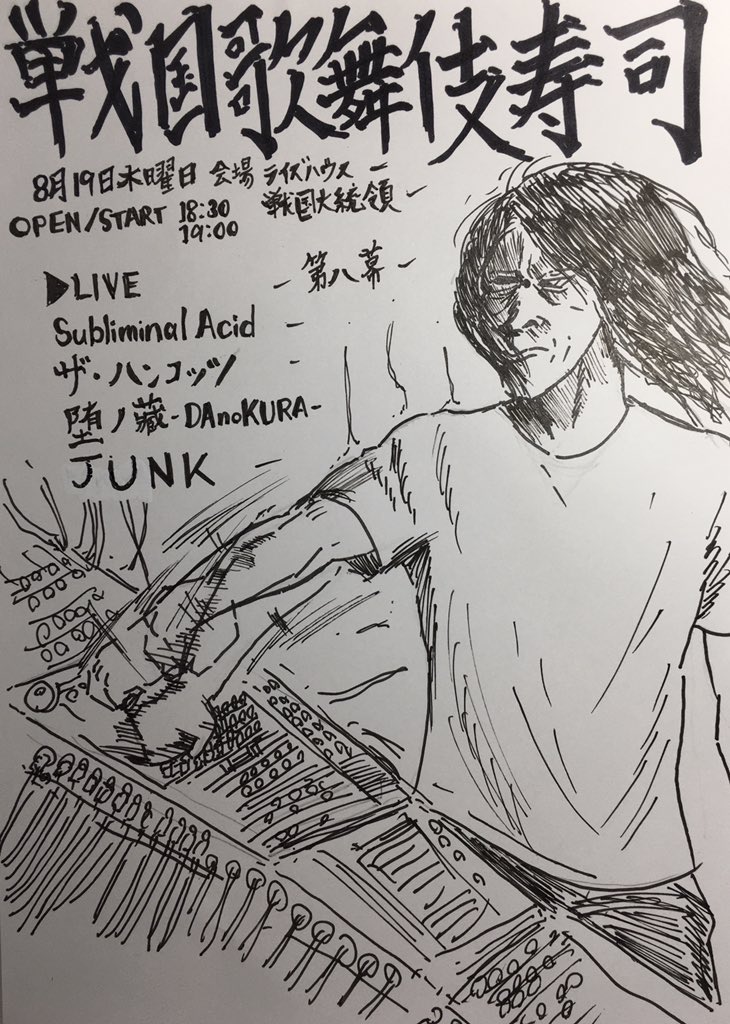 戦国歌舞伎寿司
8月19日水曜日 会場 ライズハウス
戦国大統領
OPEN/START 18:30
19:00
- 第八幕 -
▶LIVE
Subliminal Acid
ザ・ハンコッツ
堕ノ蔵-DAnoKURA-
JUNK